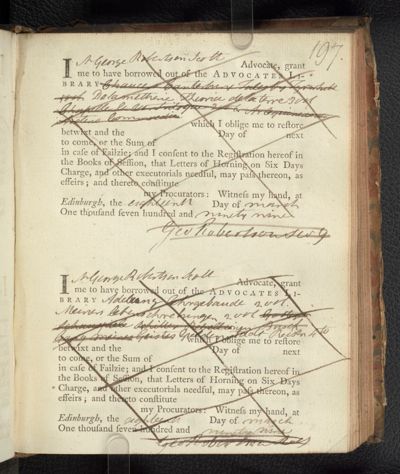 197.
I Mr George Robertson Scott Advocate, grant
me to have borrowed out of the ADVOCATES LI-
BRARY
Delametherie Theorie de la terre 3 vol

which I oblige me to restore
betwixt and the Day of next
to come, or the Sum of
in case of Failzie; and I consent to the Registration hereof in
the Books of Session, that Letters of Horning on Six Days
Charge, and other executorials needful, may pass thereon, as
effeirs; and thereto constitute
my Procurators: Witness my hand, at
Edinburgh, the eighteenth Day of march
One thousand seven hundred and ninety nine
Geo Robertson Scott
I Mr George Robertson Scott Advocate, grant
me to have borrowed out of the ADVOCATES LI-
BRARY Adelung 2 vol.
2 vol
which I oblige me to restore
betwixt and the Day of next
to come, or the Sum of
in case of Failzie; and I consent to the Registration hereof in
the Books of Session, that Letters of Horning on Six Days
Charge, and other executorials needful, may pass thereon, as
effeirs; and thereto constitute
my Procurators: Witness my hand, at
Edinburgh, the Day of march
One thousand seven hundred and ninety nine
Geo Robertson Scott